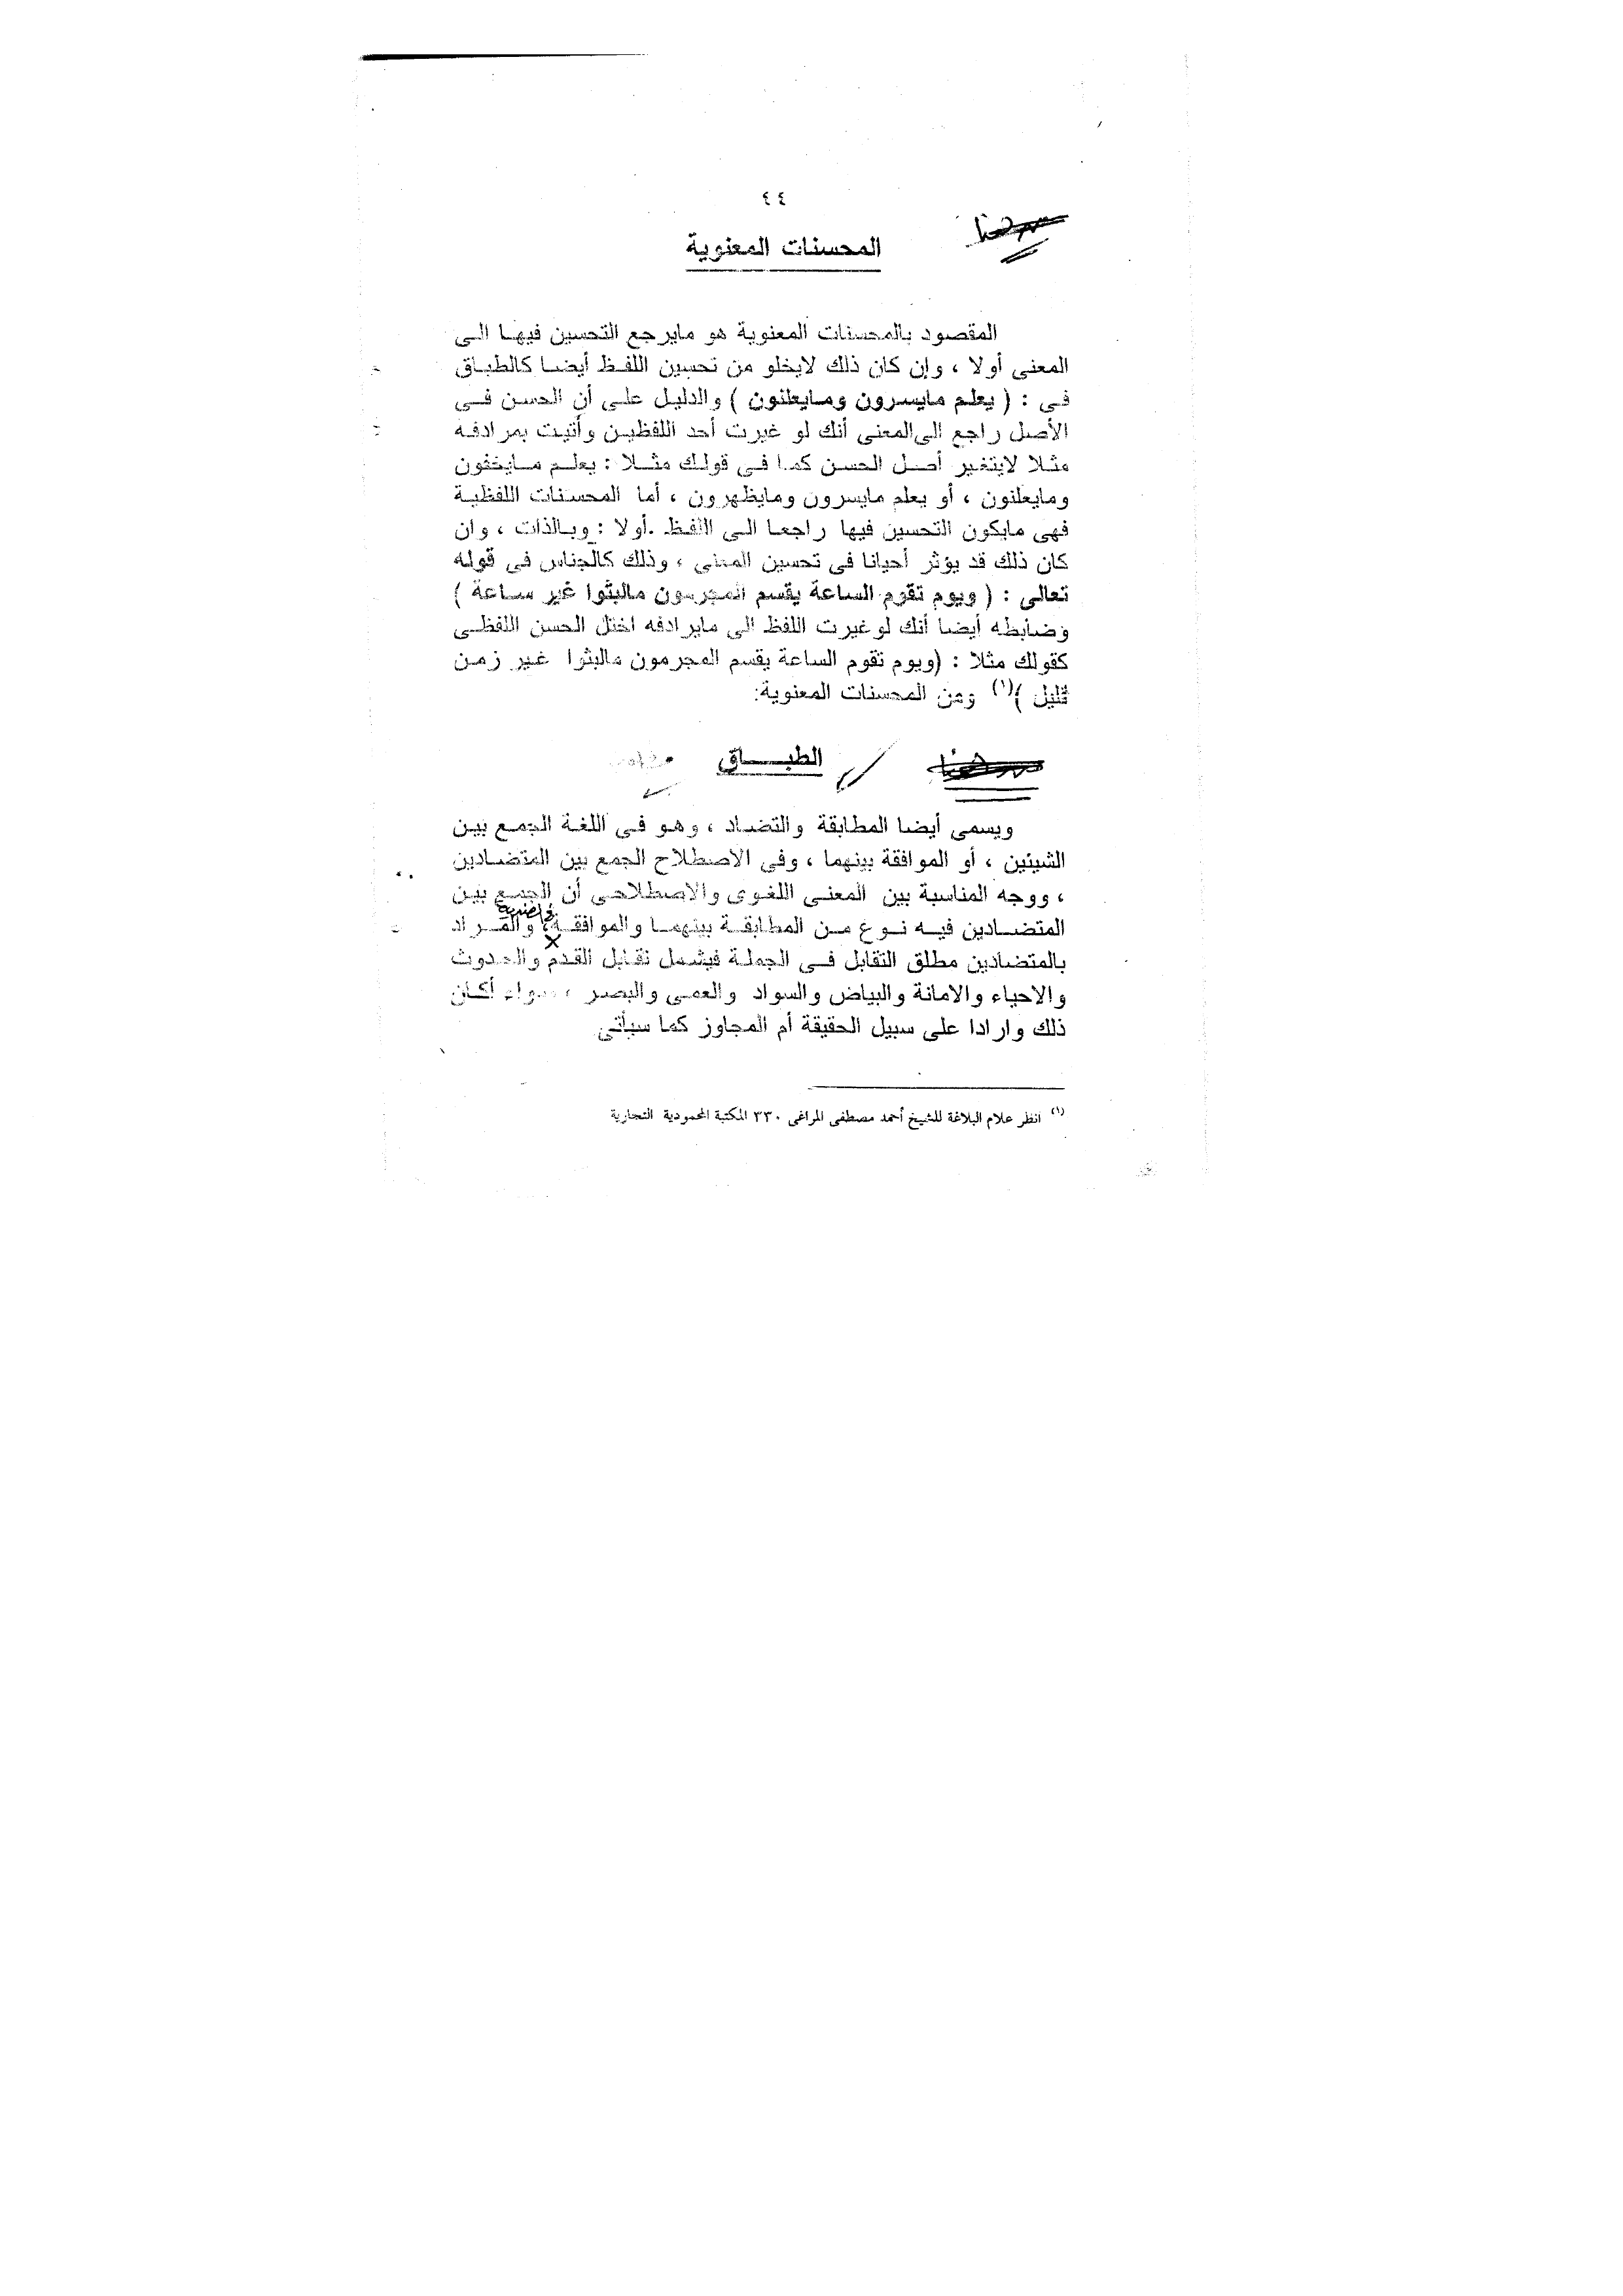 ٤٤
المحسنات المعنوية
المقصود بالمحسنات المعنوية هو مايرجع التحسين فيها الى
المعنى أولا ، وإن كان ذلك لايخلو من تحسين اللفظ أيضا كالطباق
فى : ( يعلم مايسرون ومايعلنون ) والدليل على أن الحسن فى
الأصل راجع الى المعنى أنك لو غيرت أحد اللفظين وأتيت بمرادفه
مثلا لايتغير أصل الحسن كما فى قولك مثلا : يعلم مايخفون
ومايعلنون ، أو يعلم مايسرون ومايظهرون ، أما المحسنات اللفظية
فهى مايكون التحسين فيها راجعا الى اللفظ .أولا : وبالذات ، وان
كان ذلك قد يؤثر أحيانا فى تحسين المعنى ، وذلك كالجناس فى قوله
تعالى : ( ويوم تقوم الساعة يقسم المجرمون مالبثوا غير ساعة )
وضابطه أيضا أنك لو غيرت اللفظ الى مايرادفه اختل الحسن اللفظى
كقولك مثلا : (ويوم تقوم الساعة يقسم المجرمون مالبثوا غير زمن
قليل )(١) ومن المحسنات المعنوية:
الطبـــاق
ويسمى أيضا المطابقة والتضاد ، وهو فى اللغة الجمع بين
الشيئين ، أو الموافقة بينهما ، وفى الاصطلاح الجمع بين المتضادين
، ووجه المناسبة بين المعنى اللغوى والاصطلاحى أن الجمع بين
المتضادين فيه نوع من المطابقة بينهما والموافقة ، والمراد
بالمتضادين مطلق التقابل فى الجملة فيشمل تقابل القدم والحدوث
والاحياء والامانة والبياض والسواد والعمى والبصر ، سواء أكان
ذلك وارادا على سبيل الحقيقة أم المجاوز كما سيأتى
(١) انظر علام البلاغة للشيخ أحمد مصطفى المراغى ٣٣٠ المكتبة المحمودية التجارية